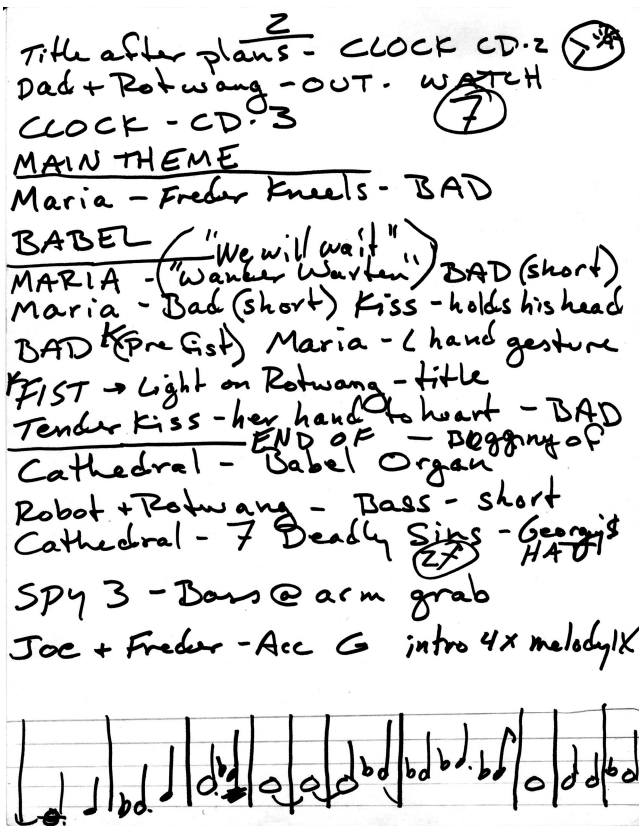 2
Title after plans - CLOCK CD.2
Dad + Rotwang - OUT. WATCH
CLOCK - CD. 3 7
MAIN THEME
Maria - Freder Kneels - BAD
BABEL
"We will wait"
MARIA - ("Wanker Warten") BAD (short)
Maria - Bad (short) Kiss - holds his head
BAD (Pre Fist) Maria - L hand gesture
FIST → Light on Rotwang - title
Tender Kiss - her hand to heart - BAD
END OF - Begging of
Cathedral - Babel Organ
Robot + Rotwang - Bass - short
Cathedral - 7 Deadly Sins - Georgy's
27 HAT
SPY 3 - Bass @ arm grab
Joe + Freder - Acc G intro 4x melody 1X